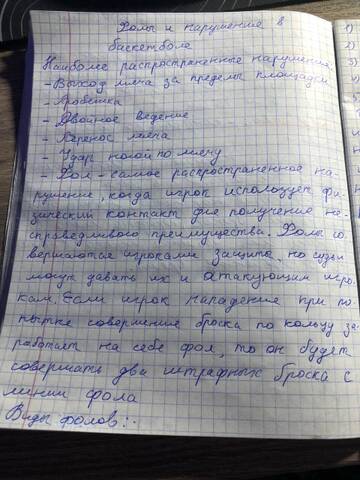 Фолы и нарушения в
баскетболе
Наиболее распространенные нарушения:
- Выход мяча за пределы площадки
- Пробежка
- Двойное ведение
- Перенос мяча
- Удар ногой по мячу
- Фол - самое распространенное на-
рушение, когда игрок использует фи-
зический контакт для получения не-
справедливого преимущества. Фолы со
вершаются игроками защиты, но судьи
могут давать их и атакующим игро-
кам. Если игрок нападения при по-
пытке совершения броска по кольцу за
работает на себе фол, то он будет
совершать два штрафных броска с
линии фола
Виды фолов:
1)
2)
3)